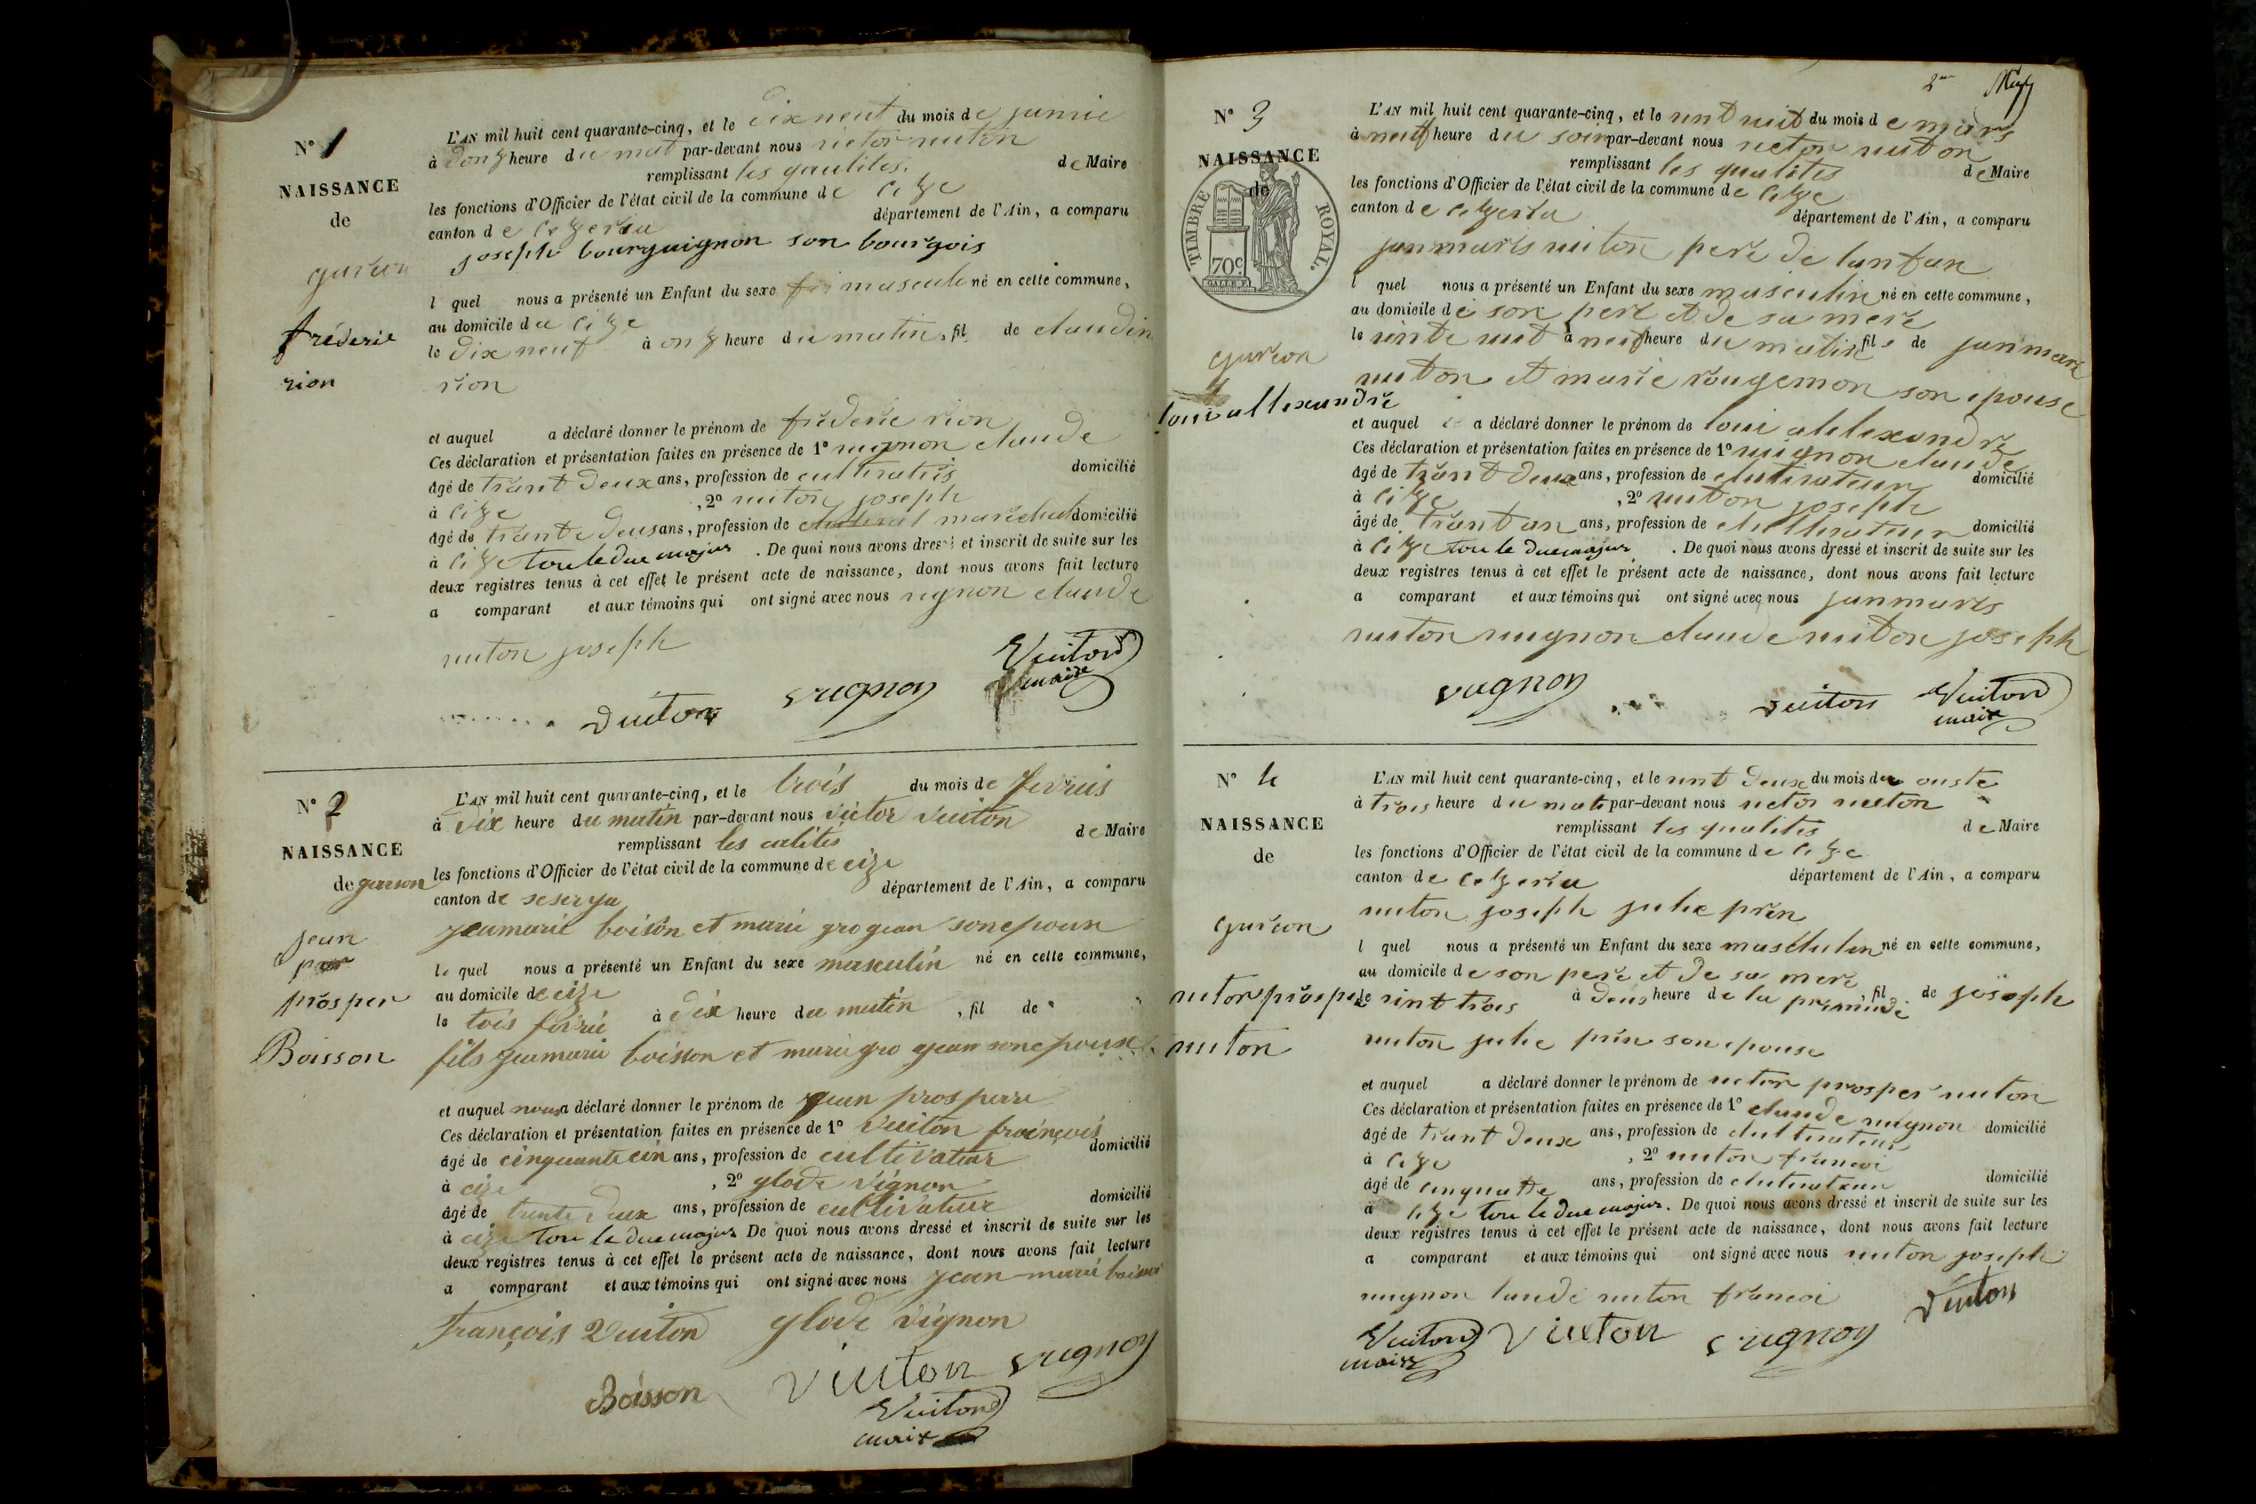 N° 1
NAISSANCE
de
garcon
fréderic
rion
L'AN mil huit cent quarante-cinq, et le dix neuf du mois de janvie
à donz heure du mat par-devant nous victor vuiton
remplissant les qaulites. de Maire
les fonctions d'Officier de l'état civil de la commune de cize
canton de cezeria département de l'Ain, a comparu
joseph bourguignon son bourgois
l quel nous a présenté un Enfant du sexe masculin né en cette commune,
au domicile du cize
le dix neuf à onz heure du matin, fil de claudin
rion
et auquel a déclaré donner le prénom de fréderic rion
Ces déclaration et présentation faites en présence de 1° vugnon claude
âgé de trant deux ans, profession de cultivateur domicilié
à cize , 2° vuiton joseph
âgé de trante deus ans, profession de marechal domicilié
à cize tou le due majur . De quoi nous avons dressé et inscrit de suite sur les
deux registres tenus à cet effet le présent acte de naissance, dont nous avons fait lecture
a comparant et aux témoins qui ont signé avec nous vugnon claude
vuiton joseph
Vuiton
maire
Vuiton vugnon
N° 2
NAISSANCE
de garson
jean
prosper
Boisson
L'AN mil huit cent quarante-cinq, et le trois du mois de fevrier
à dix heure du matin par-devant nous victor vuiton
remplissant les calités de Maire
les fonctions d'Officier de l'état civil de la commune de cize
canton de seserya département de l'Ain, a comparu
jeamarie boison et marie grogean sonepouse
le quel nous a présenté un Enfant du sexe masculin né en cette commune,
au domicile de cize
le tois fevrié à dix heure du matin , fil de
fils jeamarie boisson et marie gro gean sonepouse
et auquel nous a déclaré donner le prénom de jean prosperre
Ces déclaration et présentation faites en présence de 1° vuiton froinçois
âgé de cinquante cin ans, profession de cultivateur domicilié
à cize , 2° glode vignon
âgé de trente deux ans, profession de cultivateur domicilié
à cize tou le due majur De quoi nous avons dressé et inscrit de suite sur les
deux registres tenus à cet effet le présent acte de naissance, dont nous avons fait lecture
a comparant et aux témoins qui ont signé avec nous jean marie boisson
françois vuiton glode vignon
Boisson vuiton vugnon
Vuiton
maire
2me
N° 3
NAISSANCE
de
TIMBRE ROYAL.
70c
garcon
loui allexandre
L'AN mil huit cent quarante-cinq, et le vint uit du mois de mars
à neuf heure du soir par-devant nous victor vuiton
remplissant les qualités de Maire
les fonctions d'Officier de l'état civil de la commune de cize
canton de cezeria département de l'Ain, a comparu
janmaris vuiton pere de lanfan
l quel nous a présenté un Enfant du sexe masculin né en cette commune,
au domicile de son pere et de sa mere
le vinte uit à neuf heure du matin fil de janmari
vuiton et marie rougemon son epouse
et auquel a déclaré donner le prénom de loui allexandre
Ces déclaration et présentation faites en présence de 1° vuignon claude
âgé de trant deux ans, profession de cultivateur domicilié
à cize , 2° vuiton joseph
âgé de trant an ans, profession de cultivateur domicilié
à cize tou le due majur . De quoi nous avons dressé et inscrit de suite sur les
deux registres tenus à cet effet le présent acte de naissance, dont nous avons fait lecture
a comparant et aux témoins qui ont signé avec nous janmaris
vuiton vuignon claude vuiton joseph
vugnon vuiton Vuiton
maire
N° 4
NAISSANCE
de
garcon
victor prosper
vuiton
L'AN mil huit cent quarante-cinq, et le vint deux du mois de ouste
à trois heure du mati par-devant nous victor vuiton
remplissant les qualites de Maire
les fonctions d'Officier de l'état civil de la commune de cize
canton de cezeria département de l'Ain, a comparu
vuiton joseph julie prin
l quel nous a présenté un Enfant du sexe masculin né en cette commune,
au domicile de son pere et de sa mere
le vint trois à deus heure de la premidi , fil de joseph
vuiton julie prin son epouse
et auquel a déclaré donner le prénom de victor prosper vuiton
Ces déclaration et présentation faites en présence de 1° claude vuignon
âgé de trant deux ans, profession de cultivateur domicilié
à cize , 2° vuiton francoi
âgé de cinquatte ans, profession de cultivateur domicilié
à cize tou le due majur. De quoi nous avons dressé et inscrit de suite sur les
deux registres tenus à cet effet le présent acte de naissance, dont nous avons fait lecture
a comparant et aux témoins qui ont signé avec nous vuiton joseph
vuignon laude vuiton francoi
Vuiton vuiton vugnon Vuiton
maire